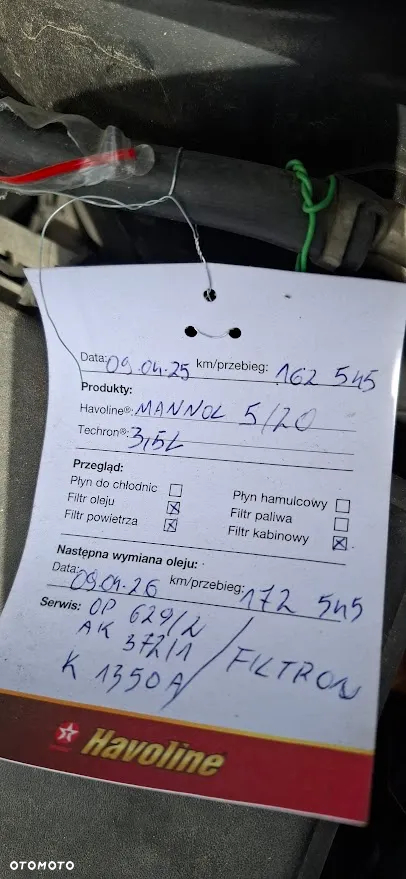 Data: 09.04.25 km/przebieg: 162 545
Produkty:
Havoline®: MANNOL 5/20
Techron®: 3,5L
Przegląd:
Płyn do chłodnic
Płyn hamulcowy
Filtr oleju
Filtr paliwa
Filtr powietrza
Filtr kabinowy
Następna wymiana oleju:
Data: 09.04.26 km/przebieg: 172 545
Serwis: OP 629/2
AK 372/1
K 1350A / FILTRON
Havoline
OTOMOTO